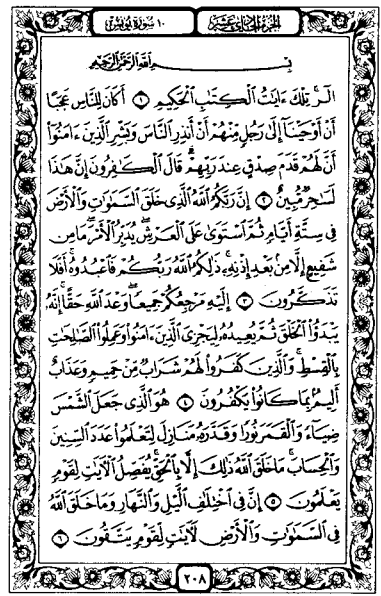 الجزء الحادي عشر
١٠ سورة يونس
بِسْمِ اللَّهِ الرَّحْمَٰنِ الرَّحِيمِ
الٓر ۚ تِلْكَ ءَايَٰتُ الْكِتَٰبِ الْحَكِيمِ ١ أَكَانَ لِلنَّاسِ عَجَبًا
أَنْ أَوْحَيْنَآ إِلَىٰ رَجُلٍ مِّنْهُمْ أَنْ أَنذِرِ النَّاسَ وَبَشِّرِ الَّذِينَ ءَامَنُوٓا
أَنَّ لَهُمْ قَدَمَ صِدْقٍ عِندَ رَبِّهِمْ ۗ قَالَ الْكَٰفِرُونَ إِنَّ هَٰذَا
لَسَٰحِرٌ مُّبِينٌ ٢ إِنَّ رَبَّكُمُ اللَّهُ الَّذِي خَلَقَ السَّمَٰوَٰتِ وَالْأَرْضَ
فِي سِتَّةِ أَيَّامٍ ثُمَّ اسْتَوَىٰ عَلَى الْعَرْشِ ۖ يُدَبِّرُ الْأَمْرَ ۖ مَا مِن
شَفِيعٍ إِلَّا مِنۢ بَعْدِ إِذْنِهِۦ ۚ ذَٰلِكُمُ اللَّهُ رَبُّكُمْ فَاعْبُدُوهُ ۚ أَفَلَا
تَذَكَّرُونَ ٣ إِلَيْهِ مَرْجِعُكُمْ جَمِيعًا ۖ وَعْدَ اللَّهِ حَقًّا ۚ إِنَّهُۥ
يَبْدَؤُا الْخَلْقَ ثُمَّ يُعِيدُهُۥ لِيَجْزِيَ الَّذِينَ ءَامَنُوا وَعَمِلُوا الصَّٰلِحَٰتِ
بِالْقِسْطِ ۚ وَالَّذِينَ كَفَرُوا لَهُمْ شَرَابٌ مِّنْ حَمِيمٍ وَعَذَابٌ
أَلِيمٌۢ بِمَا كَانُوا يَكْفُرُونَ ٤ هُوَ الَّذِي جَعَلَ الشَّمْسَ
ضِيَآءً وَالْقَمَرَ نُورًا وَقَدَّرَهُۥ مَنَازِلَ لِتَعْلَمُوا عَدَدَ السِّنِينَ
وَالْحِسَابَ ۚ مَا خَلَقَ اللَّهُ ذَٰلِكَ إِلَّا بِالْحَقِّ ۚ يُفَصِّلُ الْآيَٰتِ لِقَوْمٍ
يَعْلَمُونَ ٥ إِنَّ فِي اخْتِلَٰفِ الَّيْلِ وَالنَّهَارِ وَمَا خَلَقَ اللَّهُ
فِي السَّمَٰوَٰتِ وَالْأَرْضِ لَءَايَٰتٍ لِّقَوْمٍ يَتَّقُونَ ٦
٢٠٨